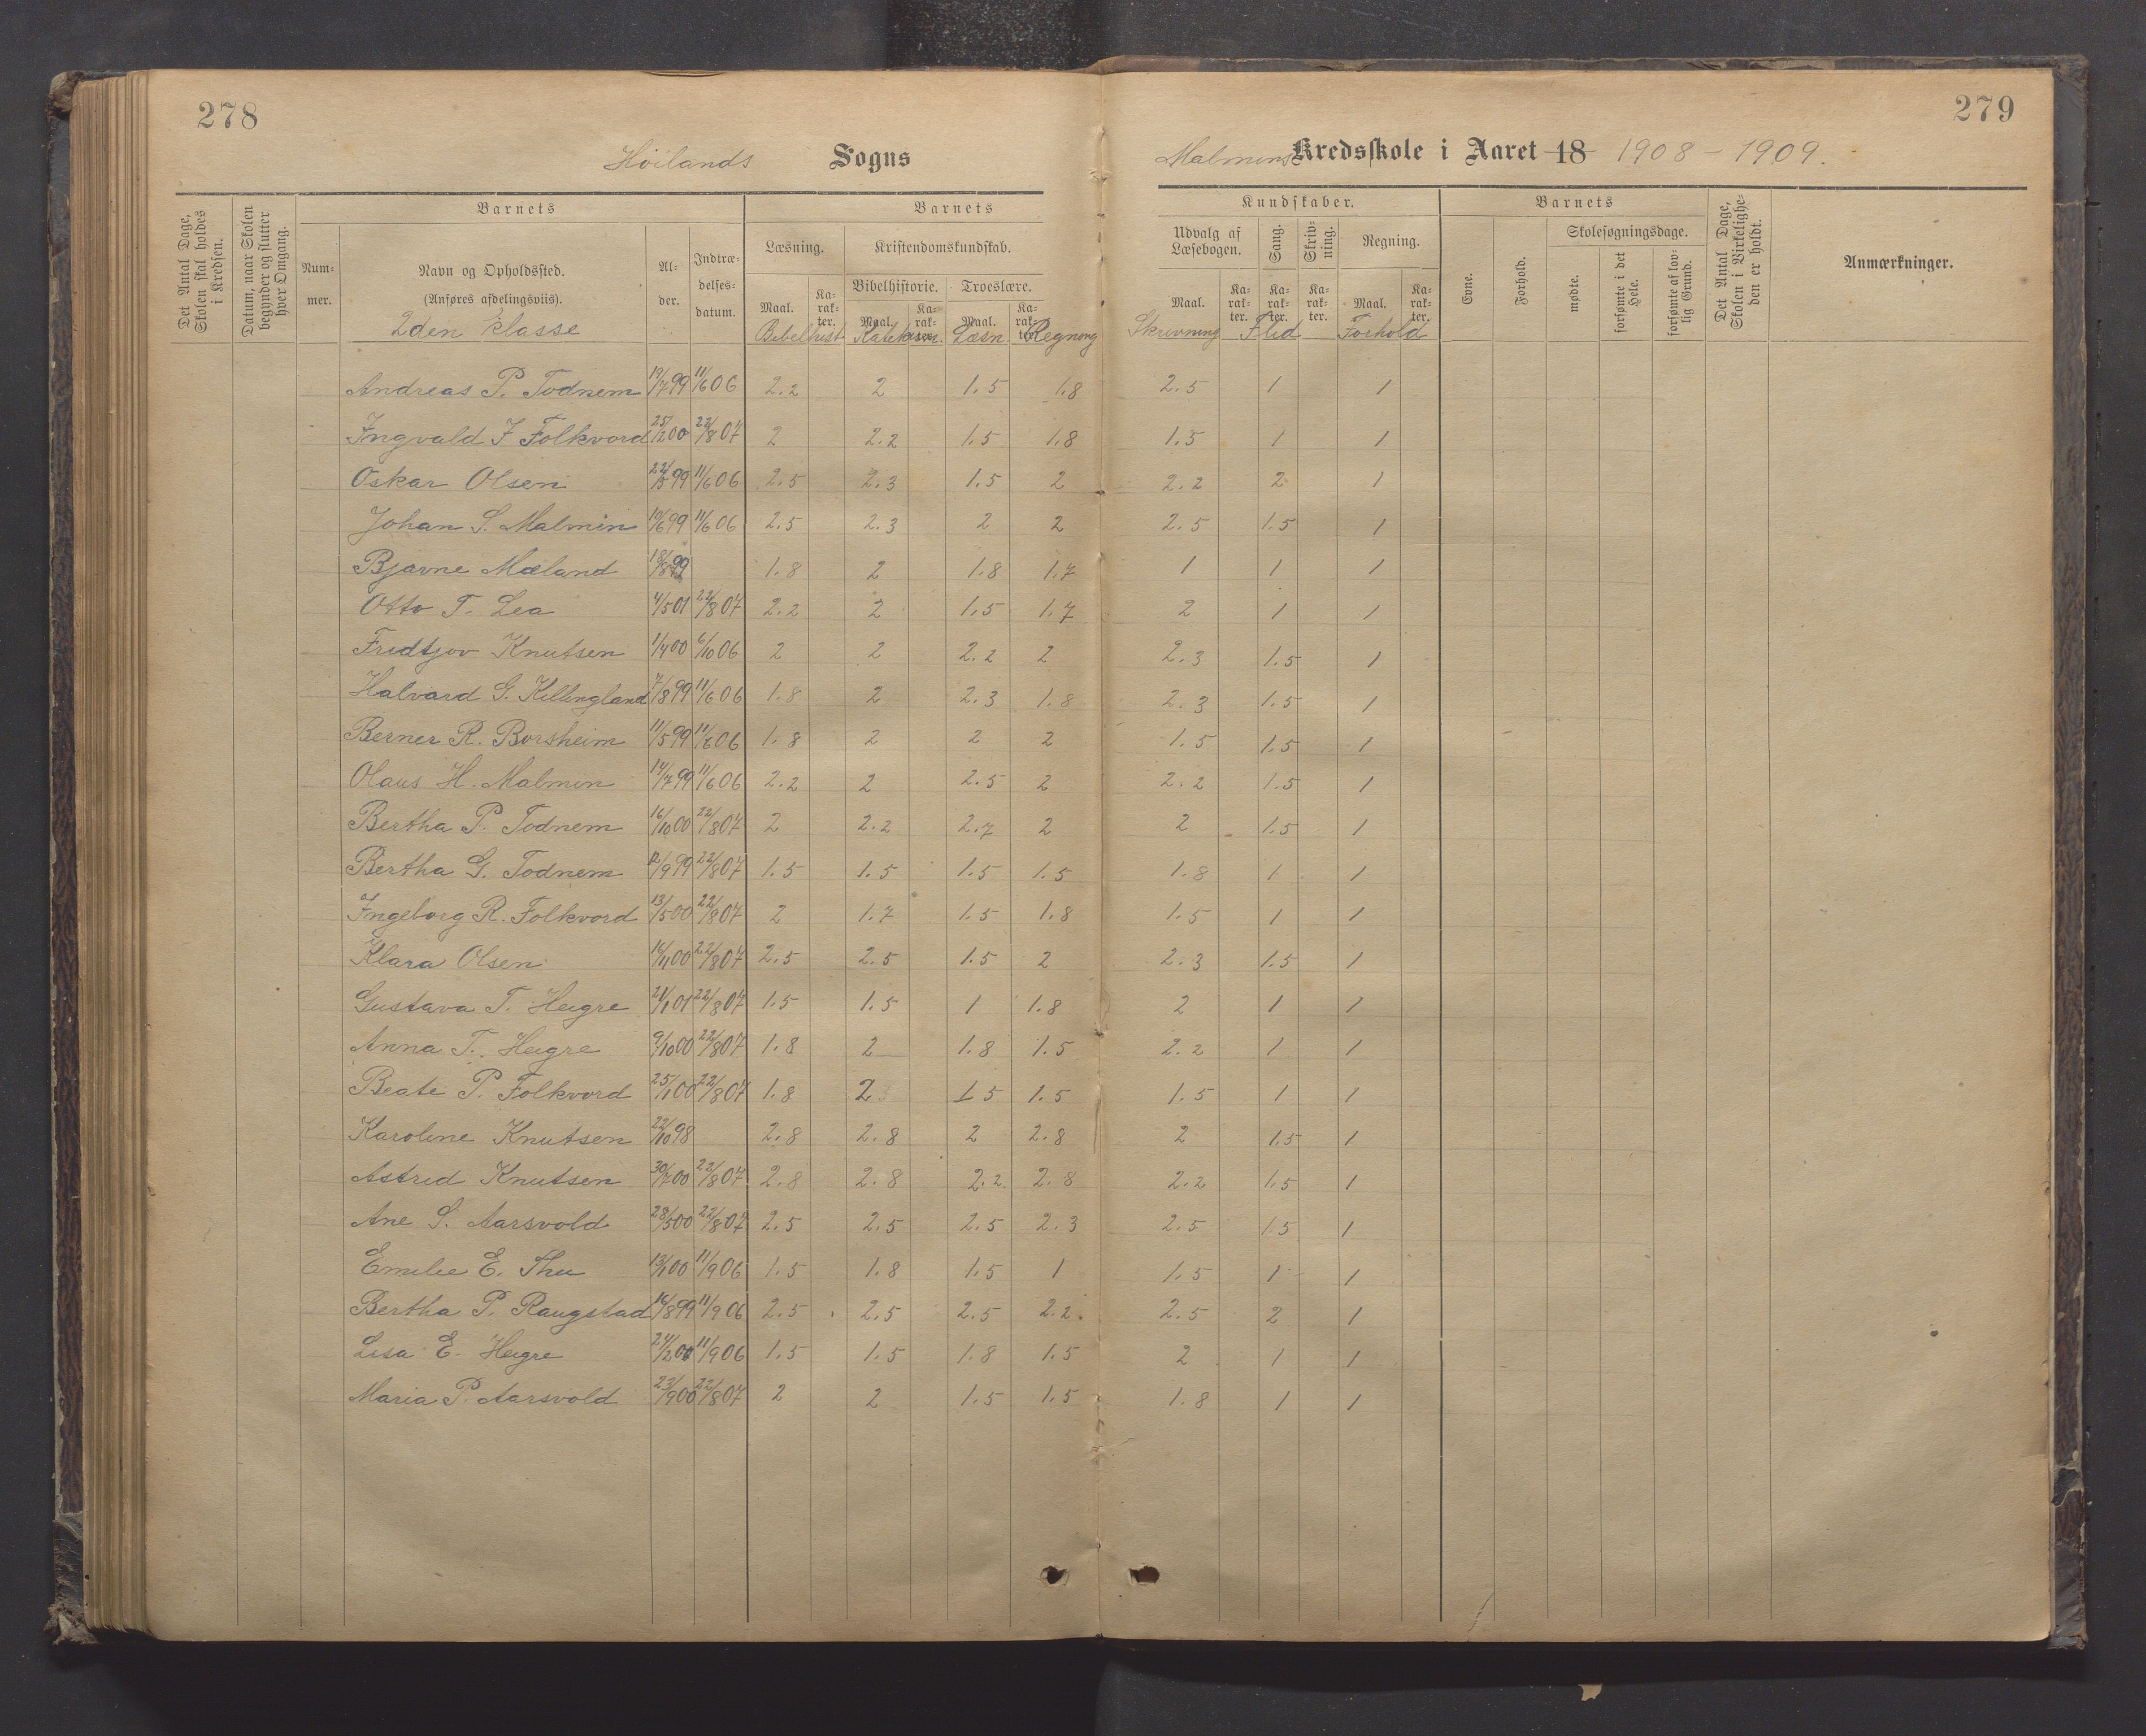 278
279
Höilands Sogns
Malmins Kredsskole i Aaret 18 1908 - 1909.
Det Antal Dage, Skolen skal holdes i Kredsen.
Datum, naar Skolen begynder og slutter hver Omgang.
Barnets
Nummer.
Navn og Opholdssted.
(Anføres afdelingsviis).
Alder.
Indtrædelsesdatum.
Barnets
Læsning.
Kristendomskundskab.
Bibelhistorie. Troeslære.
Maal. Karakter. Maal. Karakter. Maal. Karakter.
Kundskaber.
Udvalg af Læsebogen.
Sang.
Skrivning.
Regning.
Maal. Karakter. Karakter. Karakter. Maal. Karakter.
Barnets
Evne.
Forhold.
Skolesøgningsdage.
mødte.
forsømte i det Hele.
forsømte af lovlig Grund.
Det Antal Dage, Skolen i Virkeligheden er holdt.
Anmærkninger.
2den klasse Bibelhist Katekism. Læsn. Regning Skrivning Flid Forhold
Andreas P. Todnem 19/7 99 11/6 06 2.2 2 1.5 1.8 2.5 1 1
Ingvald J Folkvord 25/2 00 22/8 07 2 2.2 1.5 1.8 1.5 1 1
Oskar Olsen 22/3 99 11/6 06 2.5 2.3 1.5 2 2.2 2 1
Johan S. Malmin 10/6 99 11/6 06 2.5 2.3 2 2 2.5 1.5 1
Bjarne Mæland 18/8 99 1.8 2 1.8 1.7 1 1 1
Otto T. Lea 4/5 01 22/8 07 2.2 2 1.5 1.7 2 1 1
Fridtjov Knutsen 1/4 00 6/10 06 2 2 2.2 2 2.3 1.5 1
Halvard G. Killingland 7/8 99 11/6 06 1.8 2 2.3 1.8 2.3 1.5 1
Berner R. Borsheim 11/5 99 11/6 06 1.8 2 2 2 1.5 1.5 1
Olaus H. Malmin 14/7 99 11/6 06 2.2 2 2.5 2 2.2 1.5 1
Bertha P. Todnem 16/10 00 22/8 07 2 2.2 2.7 2 2 1.5 1
Bertha G. Todnem 12/9 99 22/8 07 1.5 1.5 1.5 1.5 1.8 1 1
Ingeborg R. Folkvord 13/5 00 22/8 07 2 1.7 1.5 1.8 1.5 1 1
Klara Olsen 16/11 00 22/8 07 2.5 2.5 1.5 2 2.3 1.5 1
Gustava T. Heigre 21/1 01 22/8 07 1.5 1.5 1 1.8 2 1 1
Anna T. Heigre 9/10 00 22/8 07 1.8 2 1.8 1.5 2.2 1 1
Beate P. Folkvord 25/1 00 22/8 07 1.8 2 1.5 1.5 1.5 1 1
Karoline Knutsen 22/10 98 2.8 2.8 2 2.8 2 1.5 1
Astrid Knutsen 30/7 00 22/8 07 2.8 2.8 2.2 2.8 2.2 1.5 1
Ane S. Aarsvold 28/5 00 22/8 07 2.5 2.5 2.5 2.3 2.5 1.5 1
Emilie E. Thu 13/1 00 11/9 06 1.5 1.8 1.5 1 1.5 1 1
Bertha P. Raugstad 16/8 99 11/9 06 2.5 2.5 2.5 2.2 2.5 2 1
Lisa E. Heigre 24/2 00 11/9 06 1.5 1.5 1.8 1.5 2 1 1
Maria P. Aarsvold 23/9 00 22/8 07 2 2 1.5 1.5 1.8 1 1